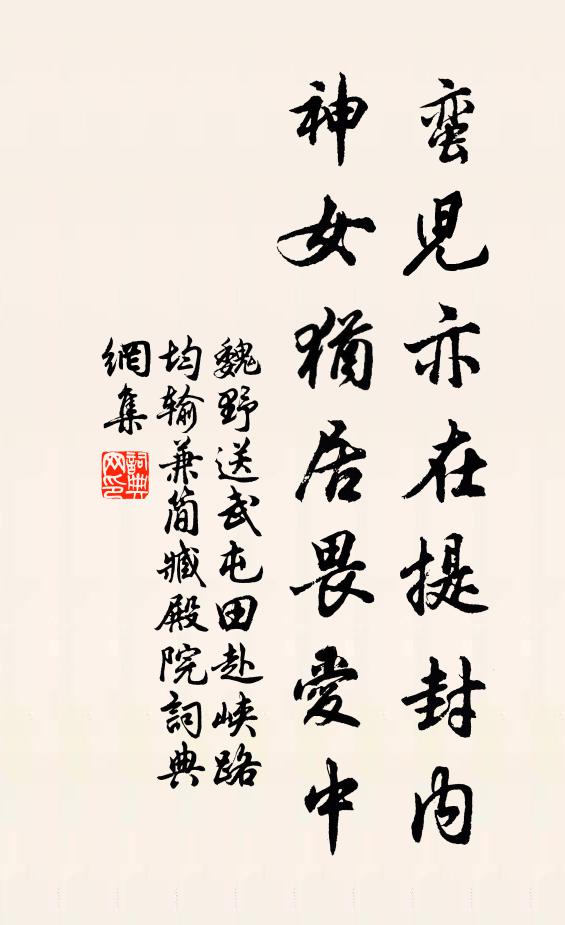 蛮児亦在提封内
神女猶居畏愛中
魏野送武屯田赴峡路
均输兼简臧殿院詞典
網集
詞典
网印